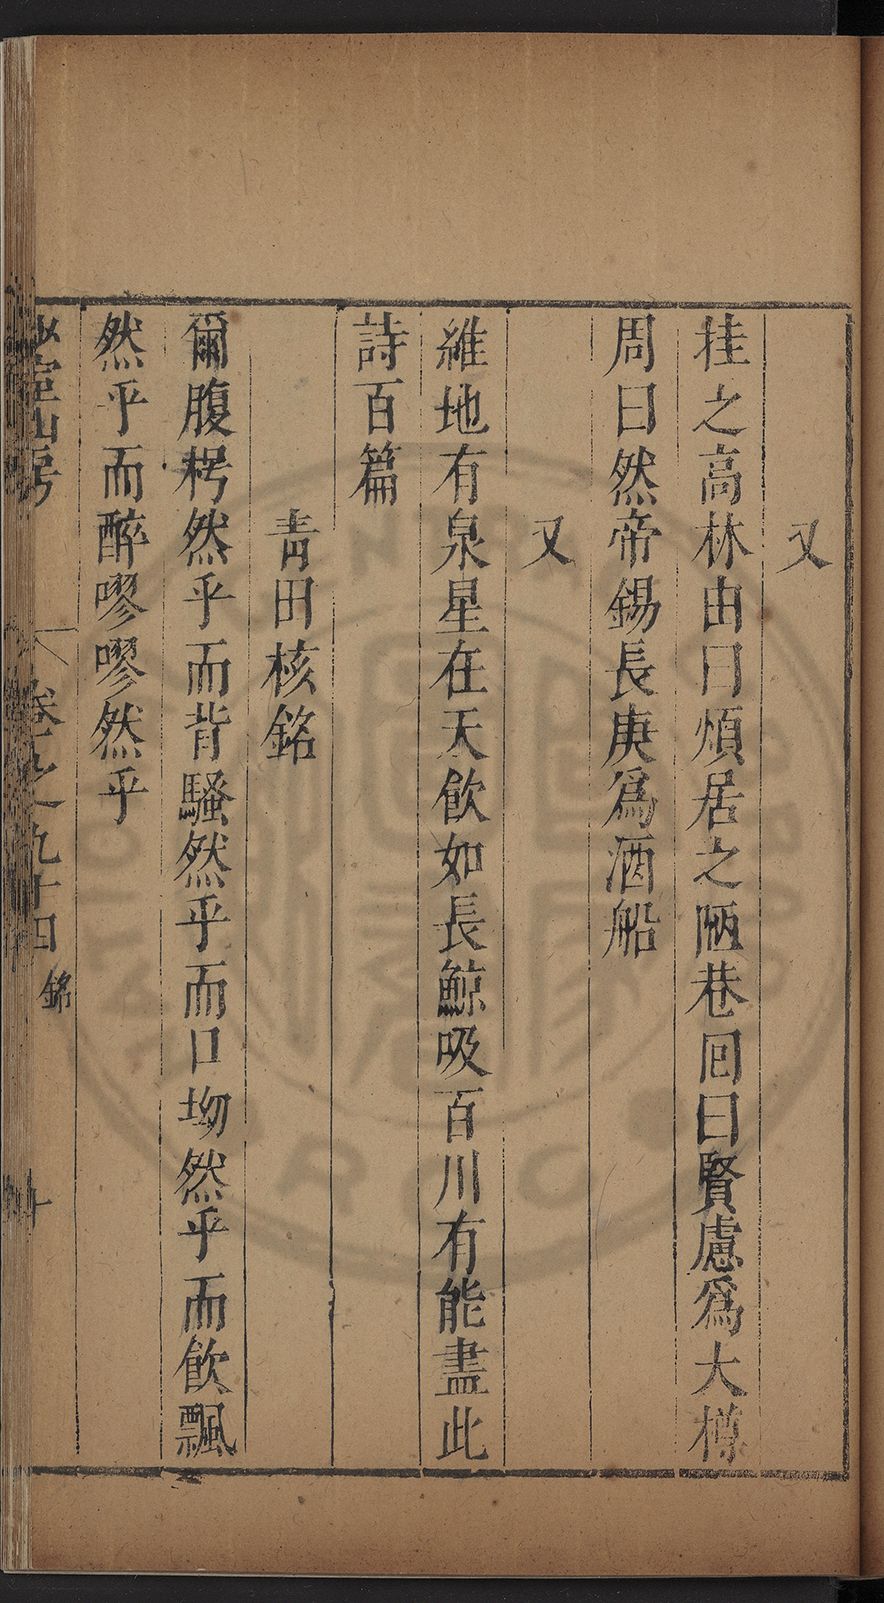 又
挂之高林由曰煩居之陋巷囘曰賢慮爲大樽
周曰然帝錫長庚爲酒船
又
維地有泉星在天飮如長鯨吸百川有能盡此
詩百篇
青田核銘
爾腹枵然乎而背騷然乎而口坳然乎而飮飄
然乎而醉嘐嘐然乎
山房
卷之九十四 銘
十